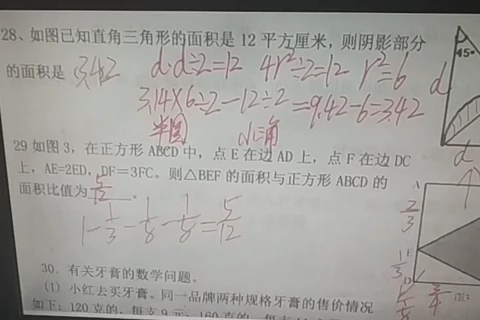 28、如图已知直角三角形的面积是 12 平方厘米，则阴影部分
的面积是 3.42 d·d÷2=12 4r²÷2=12 r²=6
3.14×6÷2-12÷2=9.42-6=3.42
半圆
45°
d
d
29 如图 3，在正方形 ABCD 中，点 E 在边 AD 上，点 F 在边 DC
上，AE=2ED，DF=3FC。则△BEF 的面积与正方形 ABCD 的
面积比值为 5/12
1-1/3-1/8-1/8=5/12
A
2/3
1/3
图3
30．有关牙膏的数学问题。
（1）小红去买牙膏。同一品牌两种规格牙膏的售价情况
如下：120 克的，每支 9 元；160 克的，每支